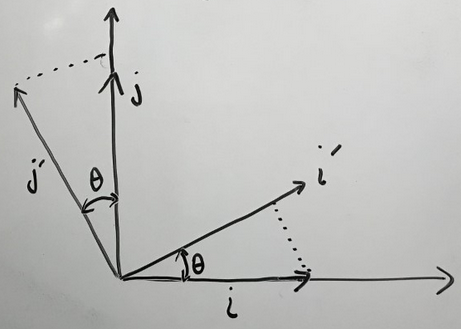 j
j′
θ
i′
θ
i